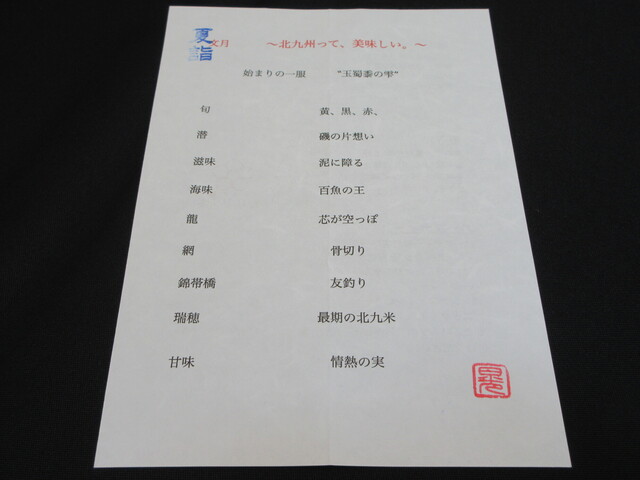 夏詣
文月 ～北九州って、美味しい。～
始まりの一服 "玉蜀黍の雫"
旬 黄、黒、赤、
潜 磯の片想い
滋味 泥に障る
海味 百魚の王
龍 芯が空っぽ
網 骨切り
錦帯橋 友釣り
瑞穂 最期の北九米
甘味 情熱の実